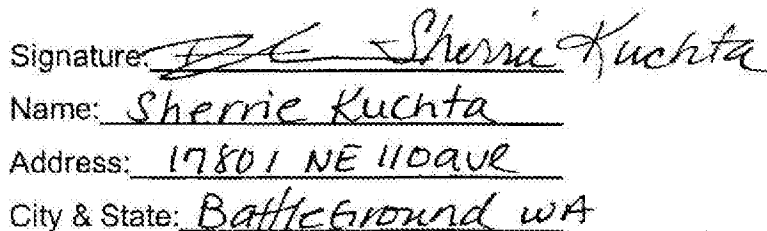 Signature: Sherrie Kuchta
Name: Sherrie Kuchta
Address: 17801 NE 110ave
City & State: BattleGround WA